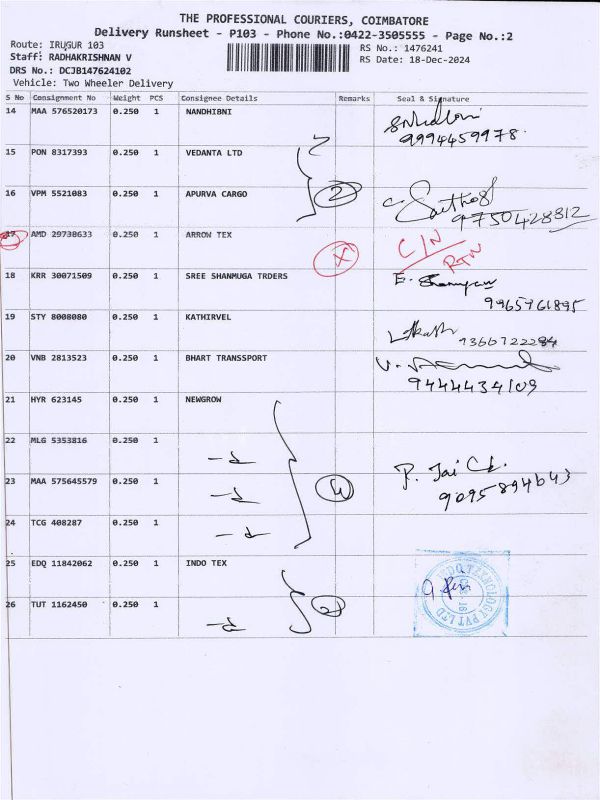 THE PROFESSIONAL COURIERS, COIMBATORE
Delivery Runsheet - P103 - Phone No.:0422-3505555 - Page No.:2
Route: IRUGUR 103
RS No.: 1476241
Staff: RADHAKRISHNAN V
RS Date: 18-Dec-2024
DRS No.: DCJB147624102
Vehicle: Two Wheeler Delivery
S No Consignment No Weight PCS Consignee Details Remarks Seal & Signature
14 MAA 576520173 0.250 1 NANDHIBNI
9994459978
15 PON 8317393 0.250 1 VEDANTA LTD
16 VPM 5521083 0.250 1 APURVA CARGO 2
9750428812
17 AMD 29738633 0.250 1 ARROW TEX X C/N RTN
18 KRR 30071509 0.250 1 SREE SHANMUGA TRDERS E.
9965761895
19 STY 8008080 0.250 1 KATHIRVEL
9366722284
20 VNB 2813523 0.250 1 BHART TRANSSPORT
9444434109
21 HYR 623145 0.250 1 NEWGROW
22 MLG 5353816 0.250 1
23 MAA 575645579 0.250 1 4 P. Jai
9095894643
24 TCG 408287 0.250 1
25 EDQ 11842062 0.250 1 INDO TEX
26 TUT 1162450 0.250 1 2
PVT LTD